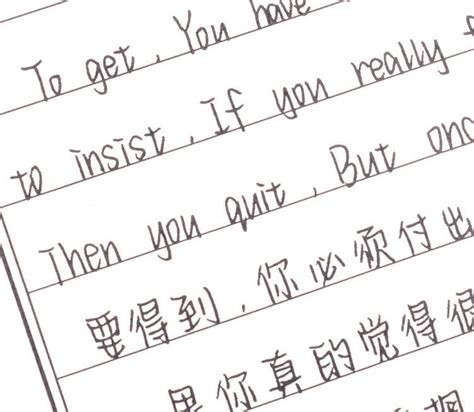 To get, You have
to insist, If you really
Then you quit, But
要得到，你必须付出
果你真的觉得很